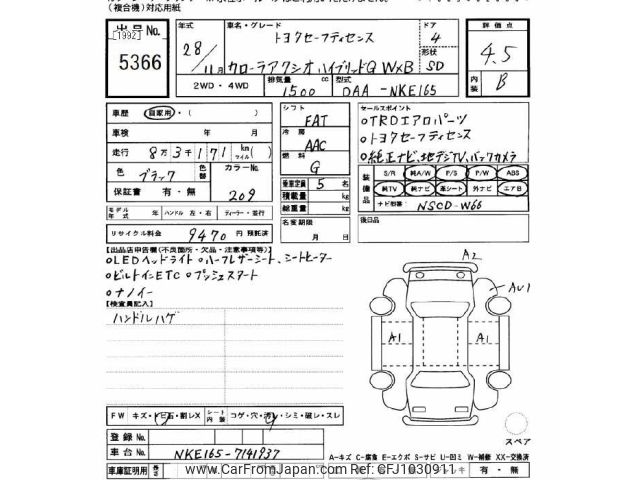 (複合機)対応用紙
出品No.
[1992]
5366
年式 車名・グレード ドア 評価点
28/11月 トヨタセーフティセンス 4 4.5
カローラアクシオ ハイブリッドG W×B 形状 SD
2WD・4WD 排気量 1500 cc 型式 DAA-NKE165 内装 B
車歴 自家用・( ) シフト FAT セールスポイント
車検 年 月 冷房 AAC oTRDエアロパーツ
走行 8万3千171 km(マイル) 燃料 G oトヨタセーフティセンス
色 ブラック 色替 カラーNo. 209 o純正ナビ,地デジTV,バックカメラ
保証書 有・無
乗車定員 5 名
積載量 kg
総重量 kg
装備品 S/R 純A/W P/S P/W ABS
純TV 純ナビ 革シート 外ナビ エアB
ナビ型番 NSCD-W66
モデル年式 年 ハンドル 左・右 ディーラー・並行
名変期限 月 日
後日品
リサイクル料金 9470 円 預託済
【出品店申告欄(不良箇所・欠品・注意事項等)】
oLEDヘッドライト oハーフレザーシート,シートヒーター
oビルトインETC oプッシュスタート
oナノイー
【検査員記入】
ハンドルハゲ
A2
AU1
A1
A1
FW キズ・ヒビ・石・割レX シート内装 コゲ・穴・汚レ・シミ・破レ・スレ
スペア
登録No.
車台No. NKE165-7141937
A-キズ C-腐食 E-エクボ S-サビ U-凹ミ W-補修 XX-交換済
車庫証明用 有・無
www.CarFromJapan.com Ref: CFJ1030911